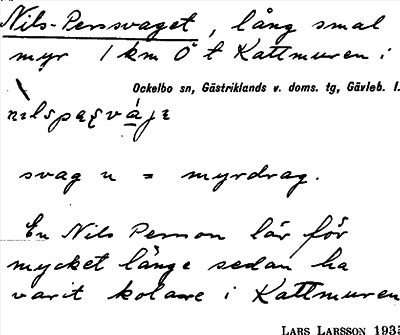 Nils-Persvaget, lång smal
myr 1 km Ö t Kattmuren i
Ockelbo sn, Gästriklands v. doms. tg, Gävleb. l.
svag n = myrdrag.
En Nils Persson lär för
mycket länge sedan ha
varit kolare i Kattmuren
LARS LARSSON 1935